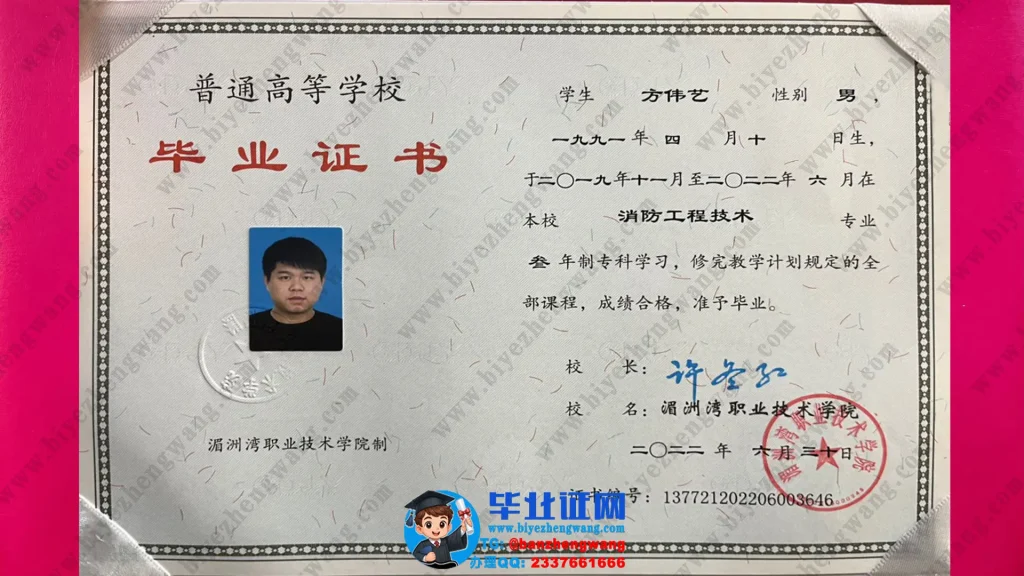 普通高等学校
毕业证书
湄洲湾职业技术学院制
学生 方伟艺 性别 男，
一九九一年 四 月十 日生，
于二〇一九年十一月至二〇二二年 六 月在
本校 消防工程技术 专业
叁 年制专科学习，修完教学计划规定的全
部课程，成绩合格，准予毕业。
校 长：许冬红
校 名：湄洲湾职业技术学院
二〇二二 年 六月三十日
证书编号：137721202206003646
湄洲湾职业技术学院
毕业证网
www.biyezhengwang.com
TG: @banzhengwang
办理QQ: 2337661666
www.biyezhengwang.com